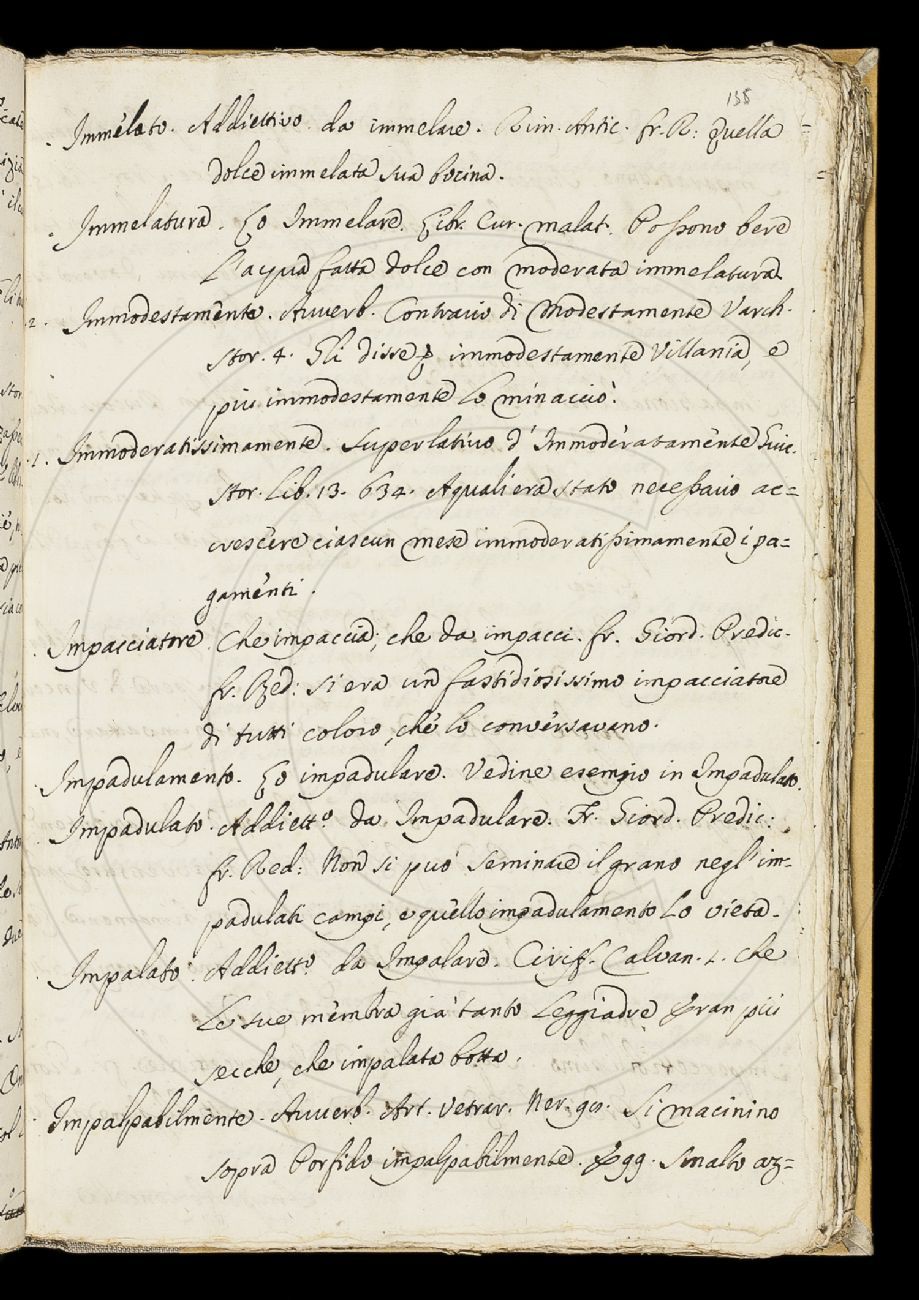 138
Immelato. Addiettivo da immelare. Rim. Antic. fr. R: Quella
dolce immelata sua bocina.
Immelatura. Lo Immelare. Libr. Cur. malat. Possono bere
L'acqua fatta dolce con moderata immelatura.
2. Immodestamente. Avverb. Contrario di Modestamente Varch.
stor. 4. Gli disse immodestamente Villania, e
più immodestamente lo minacciò.
1. Immoderatissimamente. Superlativo d'Immoderatamente Guic.
Stor. Lib. 13. 634. A quali era stato necessario ac=
crescere ciascun mese immoderatissimamente i pa=
gamenti.
Impacciatore Che impaccia, che da impacci. fr. Giord. Predic.
fr. Red: si era un fastidiosissimo impacciatore
di tutti coloro, che lo conversavano.
Impadulamento. Lo impadulare. Vedine esempio in Impadulato.
Impadulato. Addietto da Impadulare. Fr. Giord. Predic:
fr. Red: Non si può seminare il grano negl'im-
padulati campi, e quello impadulamento Lo vieta.
Impalato. Addietto da Impalare. Ciriff. Calvan. 1. che
Le sue membra già tanto Leggiadre Eran più
secche, che impalata botta.
Impalpabilmente. Avverb. Art. Vetrar. Ner. 91. Si macinino
sopra Porfido impalpabilmente. E 99. Smalto az=